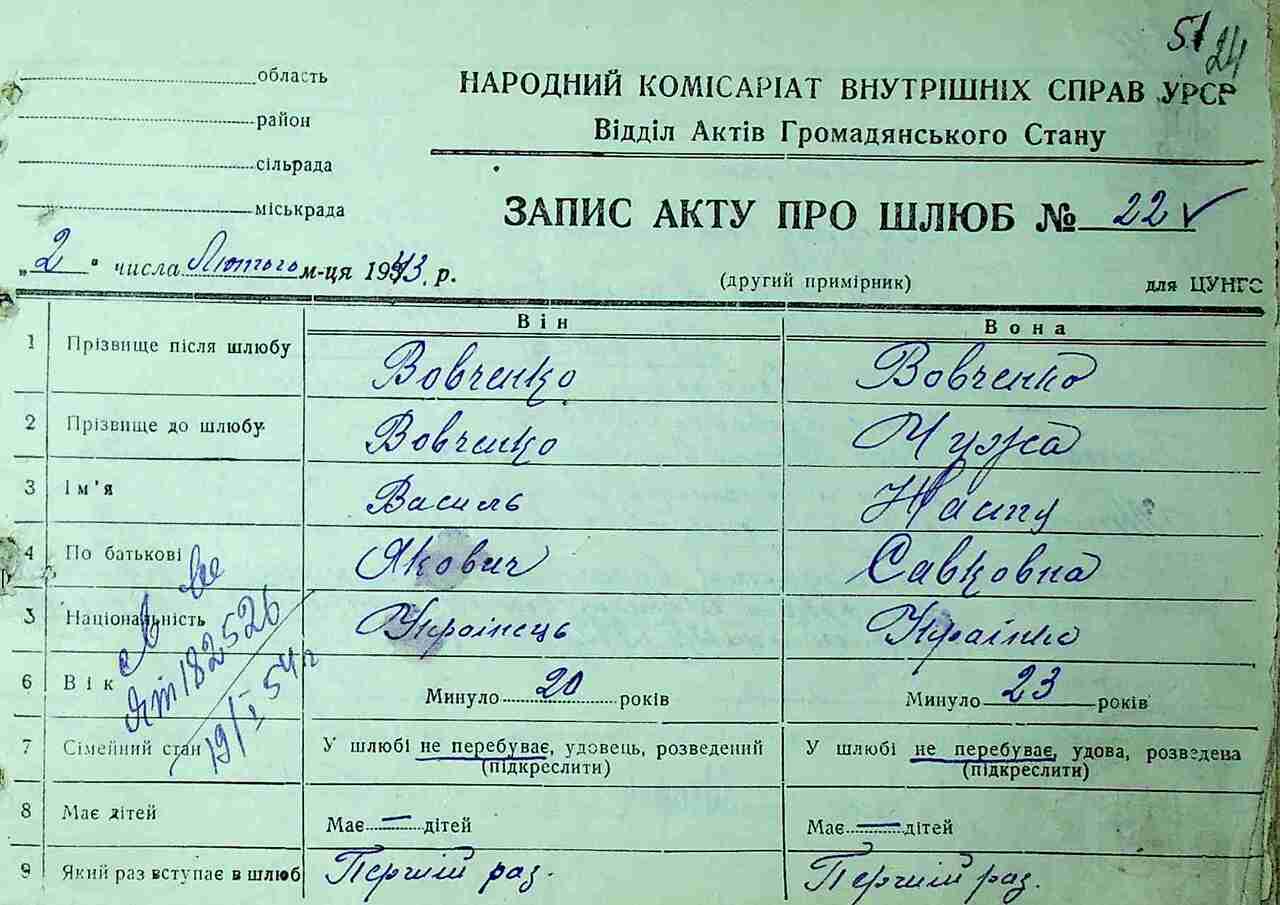 51 24
область
район
сільрада
міськрада
НАРОДНИЙ КОМІСАРІАТ ВНУТРІШНІХ СПРАВ УРСР
Відділ Актів Громадянського Стану
ЗАПИС АКТУ ПРО ШЛЮБ № 22
„2" числа Лютого м-ця 1943 р.
(другий примірник)
для ЦУНГО
Він Вона
1 Прізвище після шлюбу Вовченко Вовченко
2 Прізвище до шлюбу Вовченко Чужа
3 Ім'я Василь
4 По батькові Якович Савковна
5 Національність Українець Українка
6 Вік Минуло 20 років Минуло 23 років
7 Сімейний стан У шлюбі не перебуває, удовець, розведений У шлюбі не перебуває, удова, розведена
(підкреслити) (підкреслити)
8 Має дітей Має — дітей Має — дітей
9 Який раз вступає в шлюб Перший раз. Перший раз.
182526
19/I 54 г